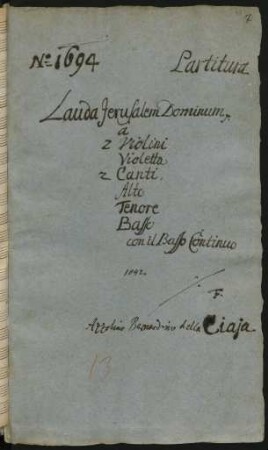 7
No. 1694 Partitura
Lauda Jerusalem Dominum,
a
2 Violini
Violetta
2 Canti.
Alto
Tenore
Basso
con il Basso Continuo
F.
Azzolino Bernardino della Ciaja
13